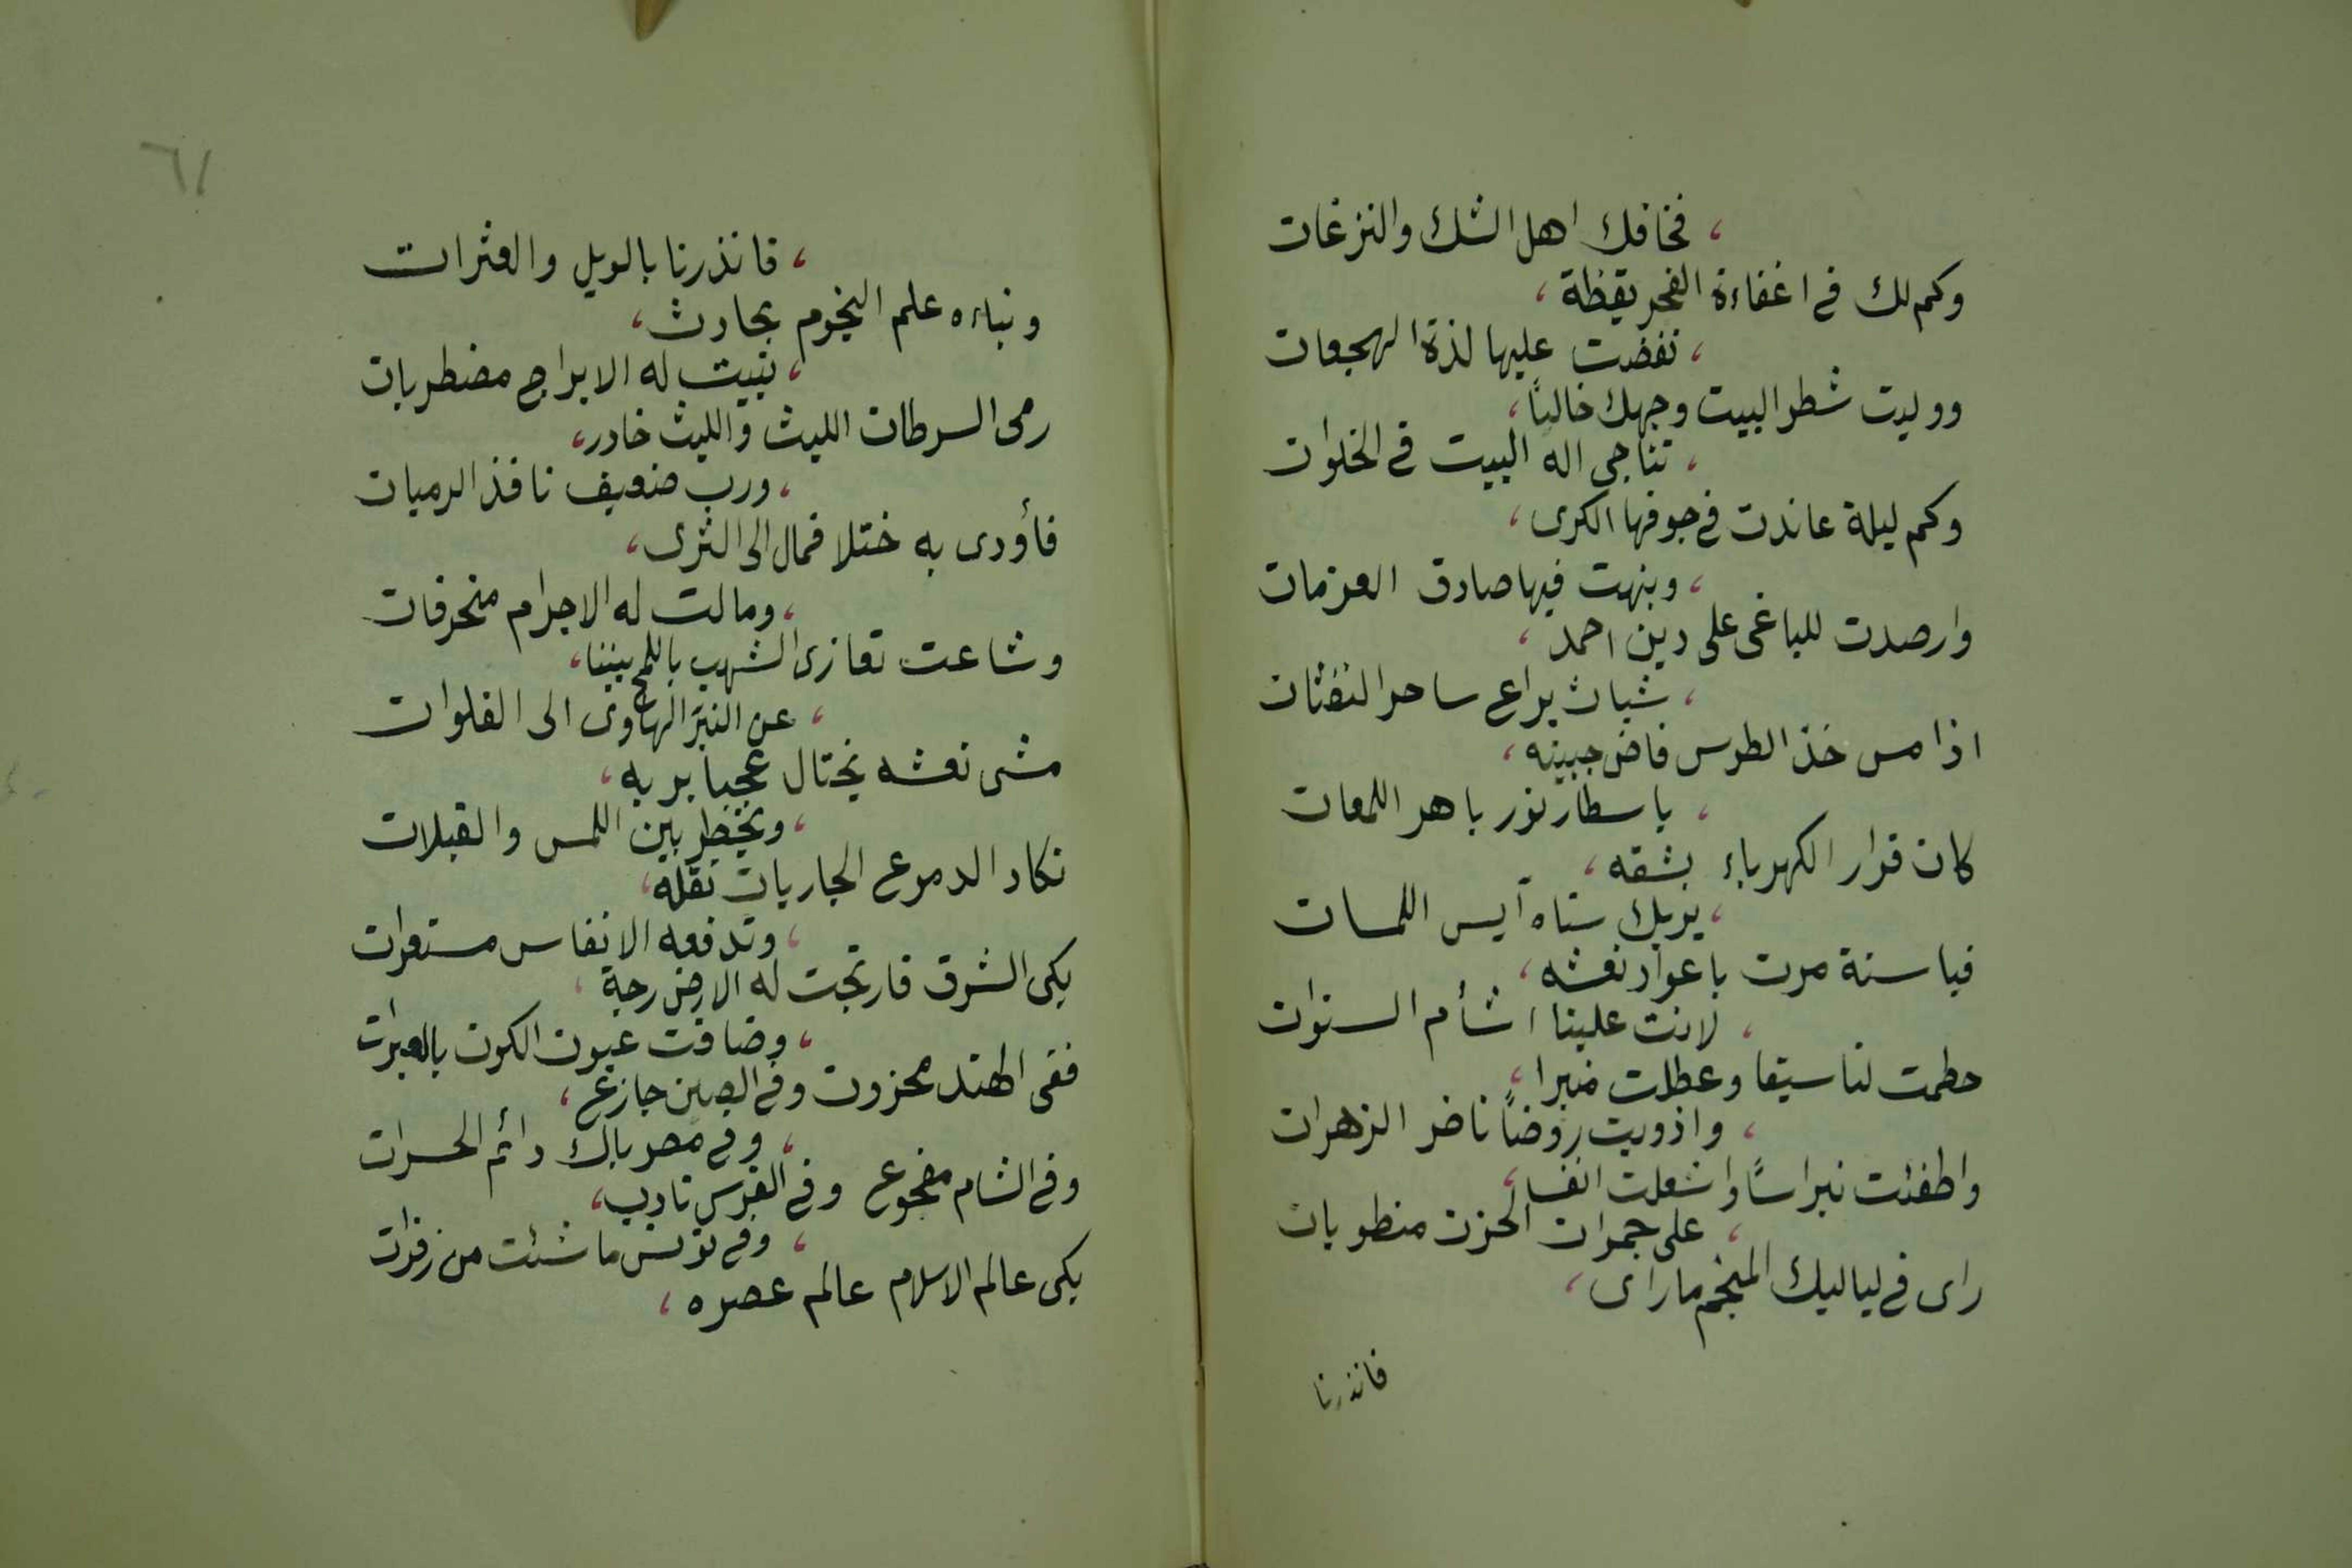 فخافك اهل الشك والنزغات
وكم لك في اغفاءة الفجر يقظة،
نفضت عليها لذة الهجعات
ووليت شطر البيت وجهك خالياً،
تناجي اله البيت في الخلوات
وكم ليلة عاندت في جوفها الكرى،
ونبهت فيها صادق العزمات
وارصدت للباغى على دين احمد،
شباث يراع ساحر النفثات
اذا مس خذ الطرس فاض جبينه،
باسطار نور باهر اللمعات
كان قرار الكهرباء بشقه،
يريك سناه آيس اللمسات
فيا سنة مرت باعواد نعشه،
لانت علينا اشأم السنوات
حطمت لنا سيفا وعطلت منبرا،
واذويت روضاً ناضر الزهرات
واطفئت نبراساً واشعلت انفسا،
على جمرات الحزن منطويات
راى في لياليك المنجم ماراى،
فانذرنا
٦١
فانذرنا بالويل والعثرات
ونباءه علم النجوم بحادث،
تبيت له الابراج مضطربات
رمى السرطان الليث والليث خادر،
ورب ضعيف نافذ الرميات
فأودى به ختلا فمال الى الثرى،
ومالت له الاجرام منحرفات
وشاعت تعازى الشهب باللمح بيننا،
عن النير الهاوى الى الفلوات
مشى نعشه يختال عجبا بربه،
ويخطر بين اللمس والقبلات
تكاد الدموع الجاريات تقله،
وتدفعه الانفاس مستعرات
بكى الشرق فارتجت له الارض رجة،
وضاقت عيون الكون بالعبرات
ففى الهند محزون وفي الصين جازع،
وفي مصر باك دائم الحسرات
وفي الشام مفجوع وفي الفرس نادب،
وفي تونس ما شئت من زفرات
بكى عالم الاسلام عالم عصره،